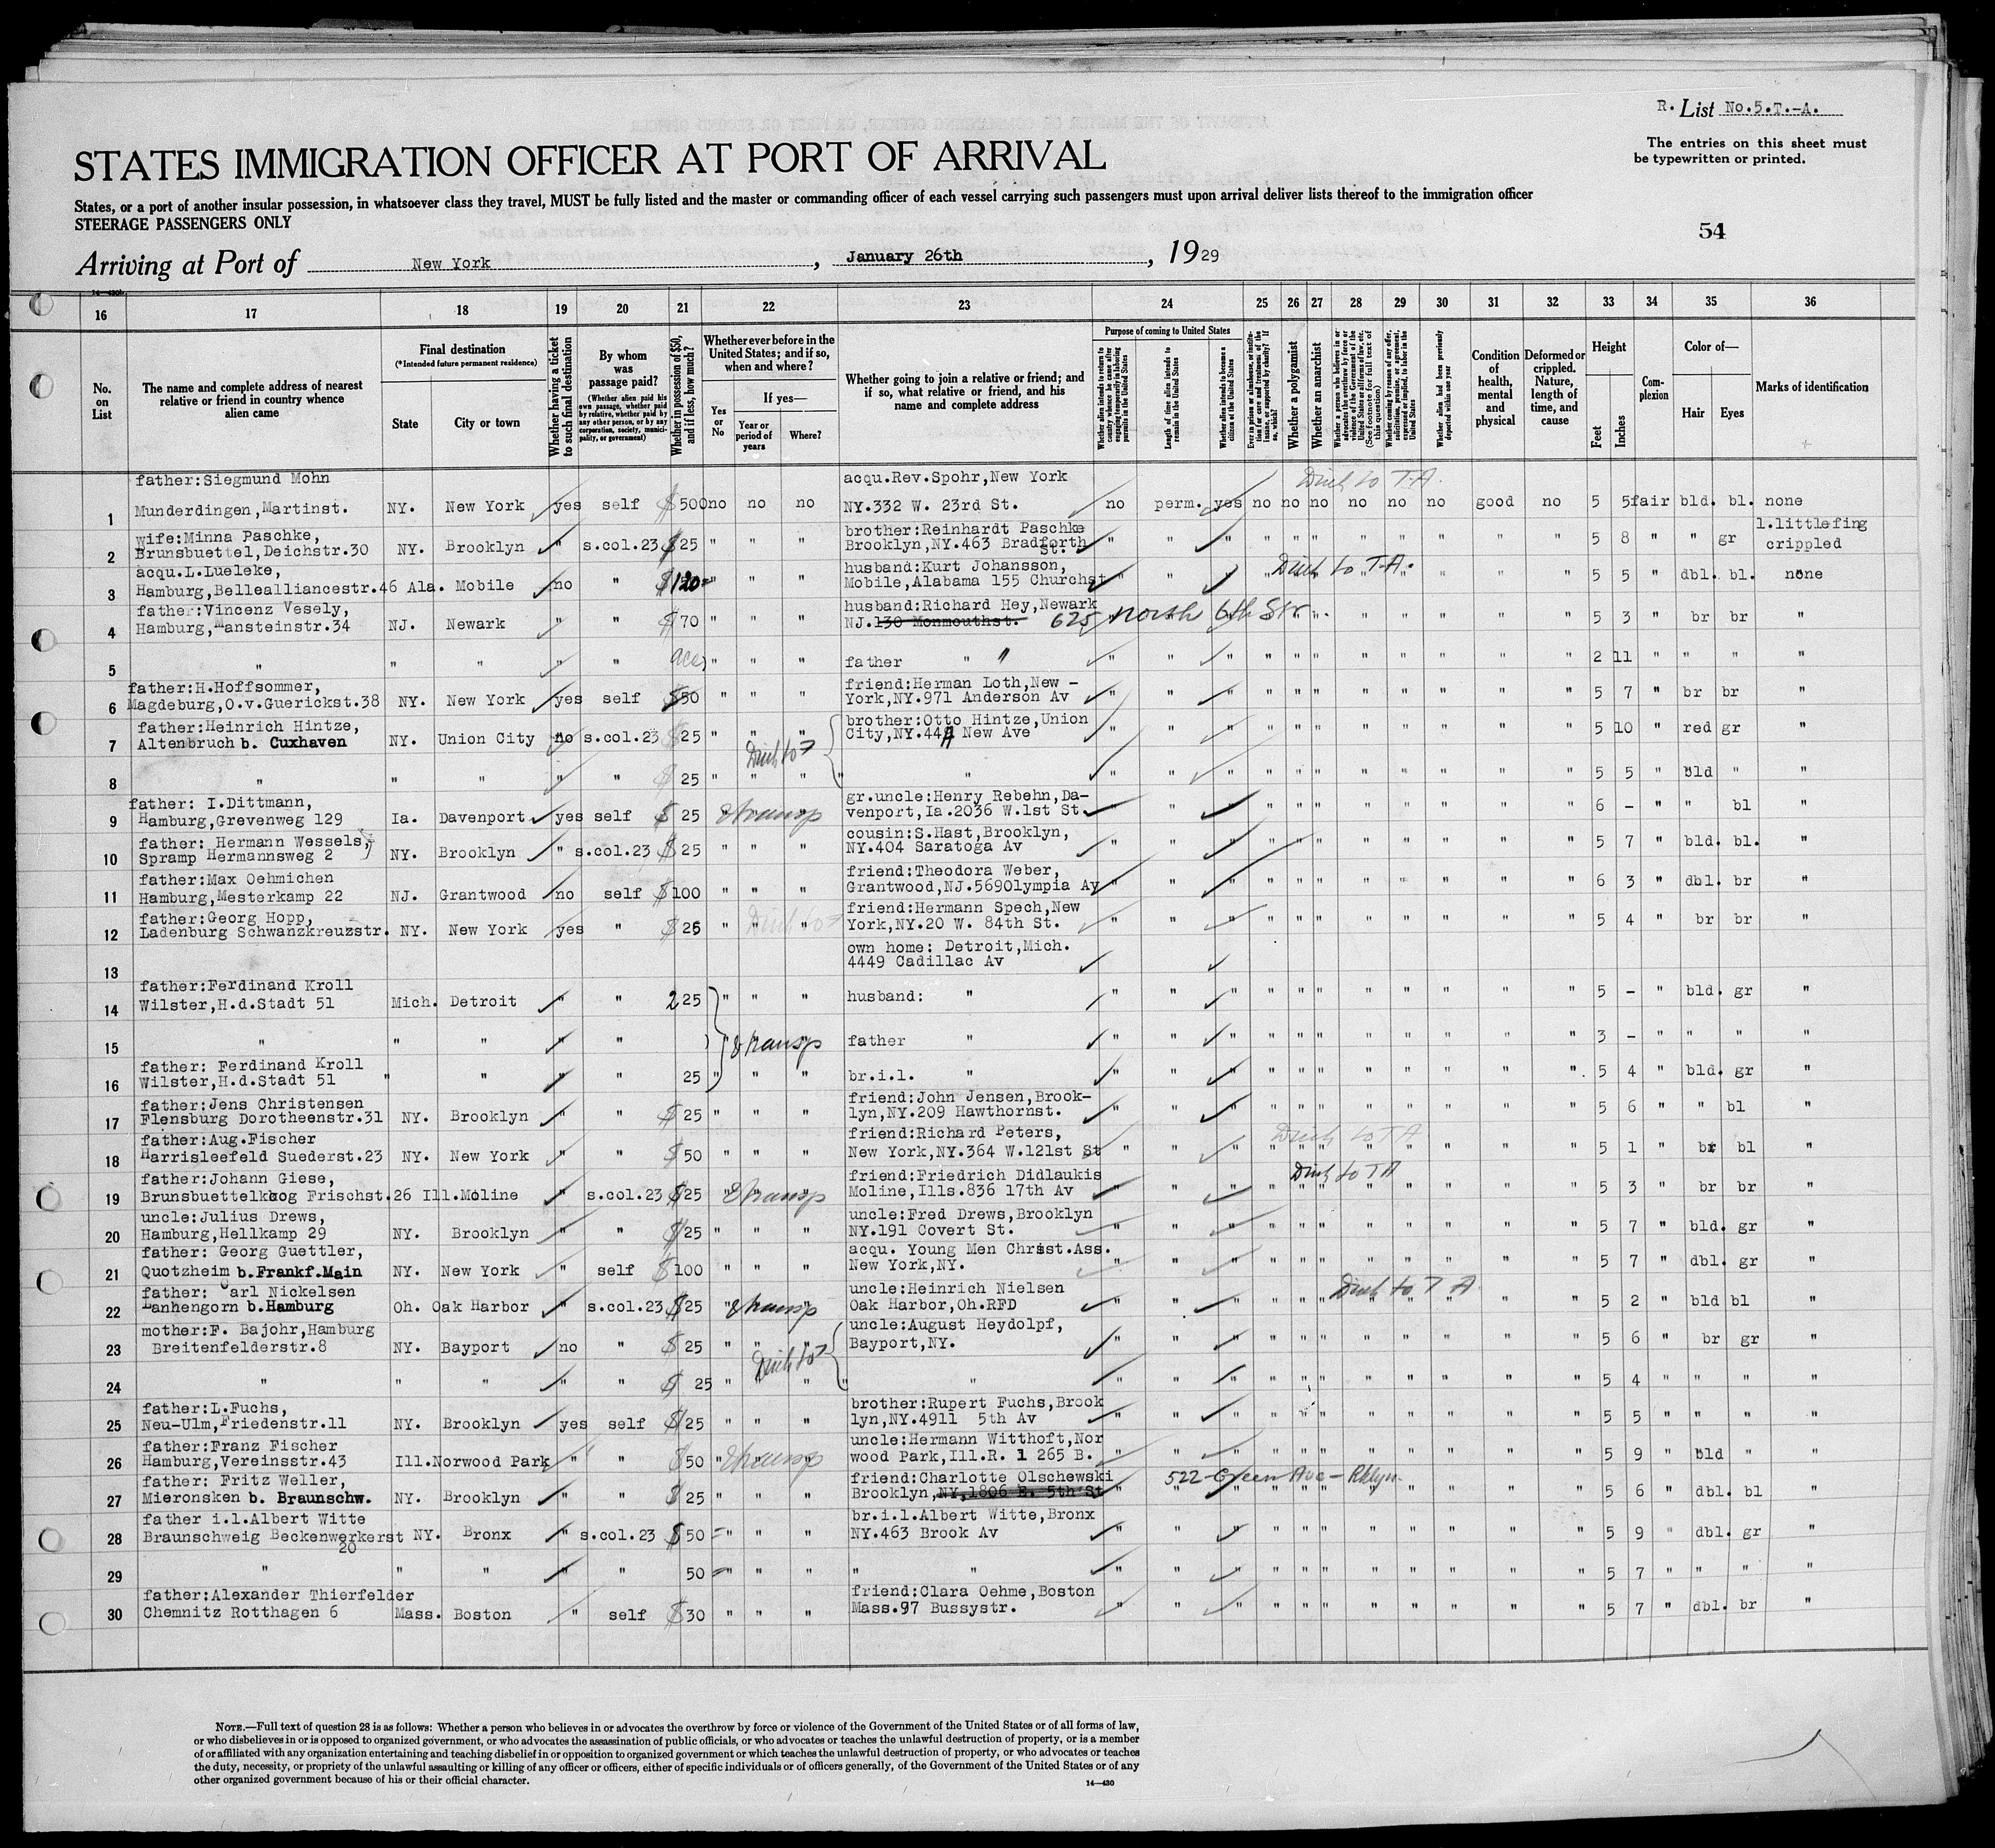 R. List No.5.T.-A.
The entries on this sheet must
be typewritten or printed.
STATES IMMIGRATION OFFICER AT PORT OF ARRIVAL
States, or a port of another insular possession, in whatsoever class they travel, MUST be fully listed and the master or commanding officer of each vessel carrying such passengers must upon arrival deliver lists thereof to the immigration officer
STEERAGE PASSENGERS ONLY
54
Arriving at Port of New York, January 26th, 1929
14—430b
16 17 18 19 20 21 22 23 24 25 26 27 28 29 30 31 32 33 34 35 36
No. on List
The name and complete address of nearest relative or friend in country whence alien came
Final destination
(*Intended future permanent residence)
State
City or town
Whether having a ticket to such final destination
By whom was passage paid?
(Whether alien paid his own passage, whether paid by relative, whether paid by any other person, or by any corporation, society, municipality, or government)
Whether in possession of $50, and if less, how much?
Whether ever before in the United States; and if so, when and where?
Yes or No
If yes—
Year or period of years
Where?
Whether going to join a relative or friend; and if so, what relative or friend, and his name and complete address
Purpose of coming to United States
Whether alien intends to return to country whence he came after engaging temporarily in laboring pursuits in the United States
Length of time alien intends to remain in the United States
Whether alien intends to become a citizen of the United States
Ever in prison or almshouse, or institution for care and treatment of the insane, or supported by charity? If so, which?
Whether a polygamist
Whether an anarchist
Whether a person who believes in or advocates the overthrow by force or violence of the Government of the United States or all forms of law, etc. (See footnote for full text of this question)
Whether coming by reason of any offer, solicitation, promise, or agreement, expressed or implied, to labor in the United States
Whether alien had been previously deported within one year
Condition of health, mental and physical
Deformed or crippled. Nature, length of time, and cause
Height
Feet
Inches
Complexion
Color of—
Hair
Eyes
Marks of identification
father:Siegmund Mohn acqu.Rev.Spohr,New York
1 Munderdingen,Martinst. NY. New York yes self $ 500 no no no NY.332 W. 23rd St. no perm. yes no no no no no no good no 5 5 fair bld. bl. none
wife:Minna Paschke, brother:Reinhardt Paschke l.littlefing
2 Brunsbuettel,Deichstr.30 NY. Brooklyn " s.col.23 $25 " " " Brooklyn,NY.463 Bradforth St. " " " " " " " " " " " 5 8 " " gr crippled
acqu.L.Lueleke, husband:Kurt Johansson,
3 Hamburg,Bellealliancestr.46 Ala. Mobile no " $120= " " " Mobile,Alabama 155 Churchst " " " " " " " " " " 5 5 " dbl. bl. none
father:Vincenz Vesely, husband:Richard Hey,Newark
4 Hamburg,Mansteinstr.34 NJ. Newark " " $70 " " " NJ.130 Monmouthst. 625 North 6th Str. " " " " " " 5 3 " br br "
5 " " " " " " " " father " " " " " " " " " " " " " 2 11 " " " "
father:H.Hoffsommer, friend:Herman Loth,New -
6 Magdeburg,O.v.Guerickst.38 NY. New York yes self $50 " " " York,NY.971 Anderson Av " " " " " " " " " " " 5 7 " br br "
father:Heinrich Hintze, brother:Otto Hintze,Union
7 Altenbruch b. Cuxhaven NY. Union City no s.col.23 $25 " " " City,NY.44A New Ave " " " " " " " " " " " 5 10 " red gr "
8 " " " " " $ 25 " " " " " " " " " " " " " " " " 5 5 " bld " "
father: I.Dittmann, gr.uncle:Henry Rebehn,Da-
9 Hamburg,Grevenweg 129 Ia. Davenport yes self $ 25 venport,Ia.2036 W.1st St. " " " " " " " " " " " 6 - " " bl "
father: Hermann Wessels, cousin:S.Hast,Brooklyn,
10 Spramp Hermannsweg 2 NY. Brooklyn " s.col.23 $25 " " " NY.404 Saratoga Av " " " " " " " " " " " 5 7 " bld. bl. "
father:Max Oehmichen friend:Theodora Weber,
11 Hamburg,Mesterkamp 22 NJ. Grantwood no self $100 " " " Grantwood,NJ.569Olympia Av " " " " " " " " " " " 6 3 " dbl. br "
father:Georg Hopp, friend:Hermann Spech,New
12 Ladenburg Schwanzkreuzstr. NY. New York yes " $25 " " " York,NY.20 W. 84th St. " " " " " " " " " " " 5 4 " br br "
own home: Detroit,Mich.
13 4449 Cadillac Av
father:Ferdinand Kroll
14 Wilster,H.d.Stadt 51 Mich. Detroit " " 225 " " " husband: " " " " " " " " " " " " 5 - " bld. gr "
15 " " " " " father " " " " " " " " " " " " 3 - " " " "
father: Ferdinand Kroll
16 Wilster,H.d.Stadt 51 " " " " 25 " " " br.i.l. " " " " " " " " " " " " 5 4 " bld. gr "
father:Jens Christensen friend:John Jensen,Brook-
17 Flensburg Dorotheenstr.31 NY. Brooklyn " " $25 " " " lyn,NY.209 Hawthornst. " " " " " " " " " " " 5 6 " " bl "
father:Aug.Fischer friend:Richard Peters,
18 Harrisleefeld Suederst.23 NY. New York " " $50 " " " New York,NY.364 W.121st St " " " " " " " " " " " 5 1 " br bl "
father:Johann Giese, friend:Friedrich Didlaukis
19 Brunsbuettelkoog Frischst.26 Ill. Moline " s.col.23 $25 Moline,Ills.836 17th Av " " " " " " " " " " " 5 3 " br br "
uncle:Julius Drews, uncle:Fred Drews,Brooklyn
20 Hamburg,Hellkamp 29 NY. Brooklyn " " $25 " " " NY.191 Covert St. " " " " " " " " " " " 5 7 " bld. gr "
father: Georg Guettler, acqu. Young Men Christ.Ass.
21 Quotzheim b.Frankf.Main NY. New York " self $100 " " " New York,NY. " " " " " " " " " " " 5 7 " dbl. gr "
father: Carl Nickelsen uncle:Heinrich Nielsen
22 Lanhengorn b.Hamburg Oh. Oak Harbor " s.col.23 $25 Oak Harbor,Oh.RFD " " " " " " " " " " " 5 2 " bld bl "
mother:F. Bajohr,Hamburg uncle:August Heydolpf,
23 Breitenfelderstr.8 NY. Bayport no " $25 " " " Bayport,NY. " " " " " " " " " " " 5 6 " br gr "
24 " " " " " $ 25 " " " " " " " " " " " " " " " " 5 4 " " " "
father:L.Fuchs, brother:Rupert Fuchs,Brook
25 Neu-Ulm,Friedenstr.11 NY. Brooklyn yes self $25 " " " lyn,NY.4911 5th Av " " " " " " " " " " " 5 5 " " " "
father:Franz Fischer uncle:Hermann Witthoft,Nor
26 Hamburg,Vereinsstr.43 Ill. Norwood Park " " $50 wood Park,Ill.R. 1 265 B. " " " " " " " " " " " 5 9 " bld " "
father: Fritz Weller, friend:Charlotte Olschewski 522 Green Ave - Bklyn
27 Mieronsken b. Braunschw. NY. Brooklyn " " $25 " " " Brooklyn,NY,1806 E. 5th St " " " " " " " " " " " 5 6 " dbl. bl "
father i.l.Albert Witte br.i.l.Albert Witte,Bronx
28 Braunschweig Beckenwerkerst 20 NY. Bronx " s.col.23 $50 " " " NY.463 Brook Av " " " " " " " " " " " 5 9 " dbl. gr "
29 " " " " " 50 " " " " " " " " " " " " " " " " 5 7 " " " "
father:Alexander Thierfelder friend:Clara Oehme,Boston
30 Chemnitz Rotthagen 6 Mass. Boston " self $30 " " " Mass.97 Bussystr. " " " " " " " " " " " 5 7 " dbl. br "
NOTE.—Full text of question 28 is as follows: Whether a person who believes in or advocates the overthrow by force or violence of the Government of the United States or of all forms of law,
or who disbelieves in or is opposed to organized government, or who advocates the assassination of public officials, or who advocates or teaches the unlawful destruction of property, or is a member
of or affiliated with any organization entertaining and teaching disbelief in or opposition to organized government or which teaches the unlawful destruction of property, or who advocates or teaches
the duty, necessity, or propriety of the unlawful assaulting or killing of any officer or officers, either of specific individuals or of officers generally, of the Government of the United States or of any
other organized government because of his or their official character.
14—430